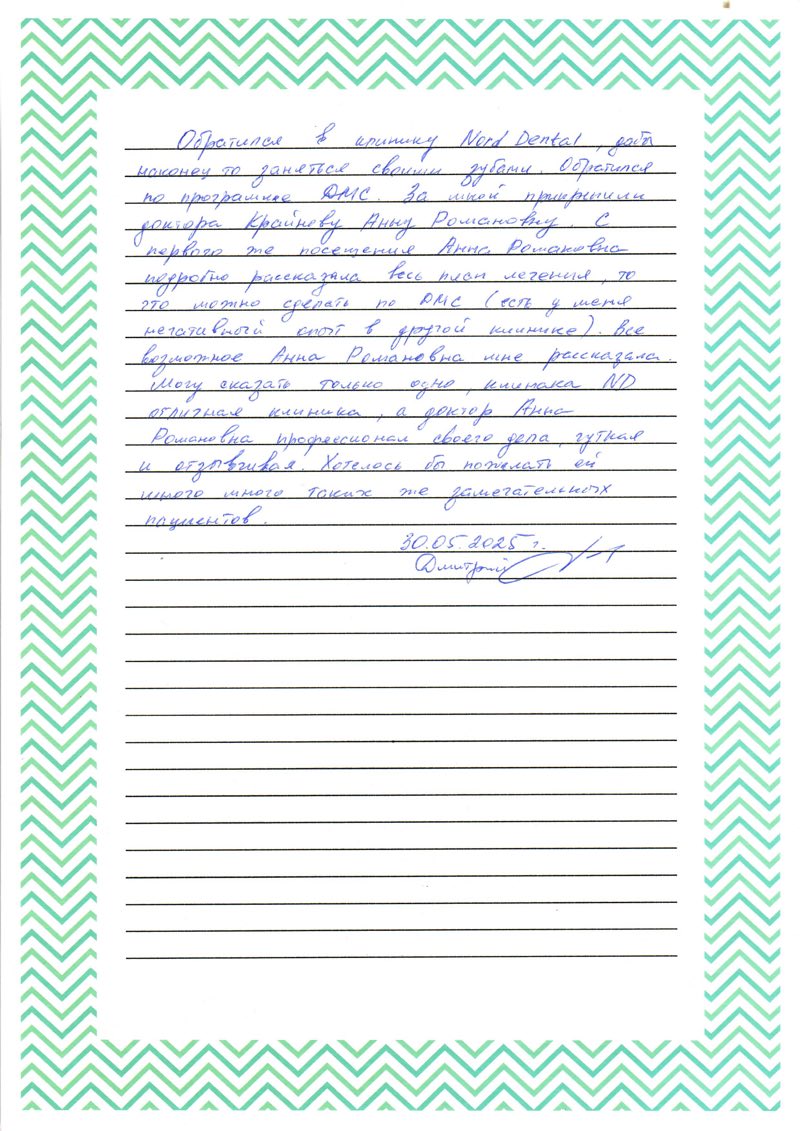 Обратился в клинику Nord Dental, дабы
наконец то заняться своими зубами. Обратился
по программе ДМС. За мной прикрепили
доктора Крайневу Анну Романовну. С
первого же посещения Анна Романовна
подробно рассказала весь план лечения, то
что можно сделать по ДМС (есть у меня
негативный опыт в другой клинике). Все
возможное Анна Романовна мне рассказала.
Могу сказать только одно, клиника ND
отличная клиника, а доктор Анна
Романовна профессионал своего дела, чуткая
и отзывчивая. Хотелось бы пожелать ей
много много таких же замечательных
пациентов.
30.05.2025 г.
Дмитрий